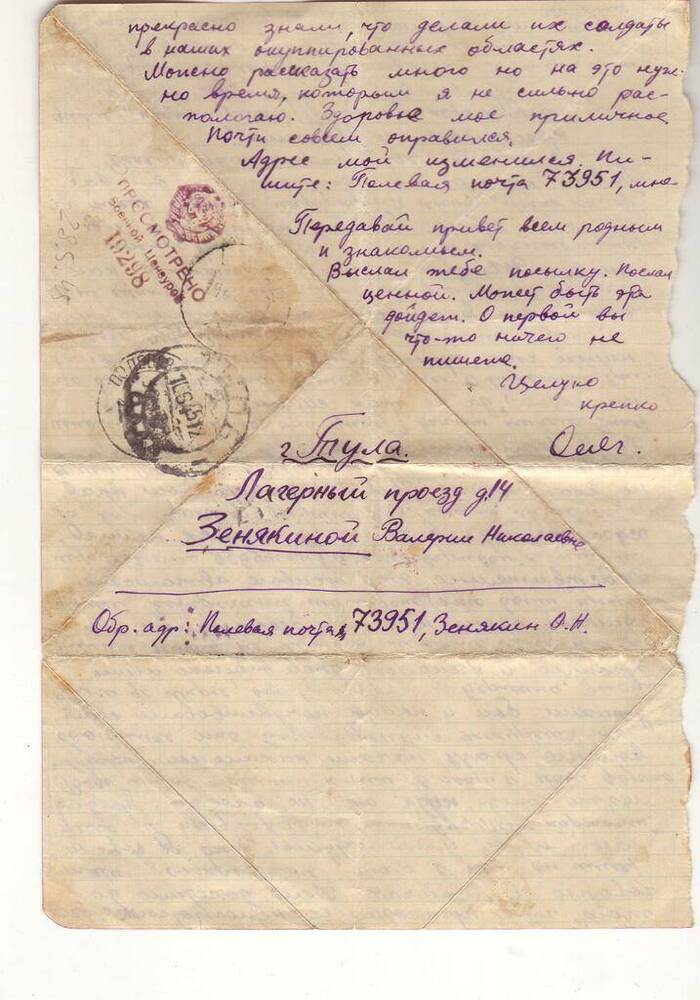 прекрасно знали, что делали их солдаты
в наших окуппированных областях.
Можно рассказать много но на это нуж-
но время, которым я не сильно рас-
пологаю. Здоровье мое приличное
Почти совсем оправился.
Адрес мой изменился. Пи-
шите: Полевая почта 73951, мне
Передавай привет всем родным
и знакомым.
Выслал тебе посылку. Послал
ценной. Может быть эта
дойдет. О первой вы
что-то ничего не
пишете.
Целую
крепко
Олег.
ПРОСМОТРЕНО
Военной Цензурой
19298
г Тула.
Лагерный проезд д.14
Зенякиной Валерии Николаевне
Обр. адр: Полевая почта, 73951, Зенякин О.Н.